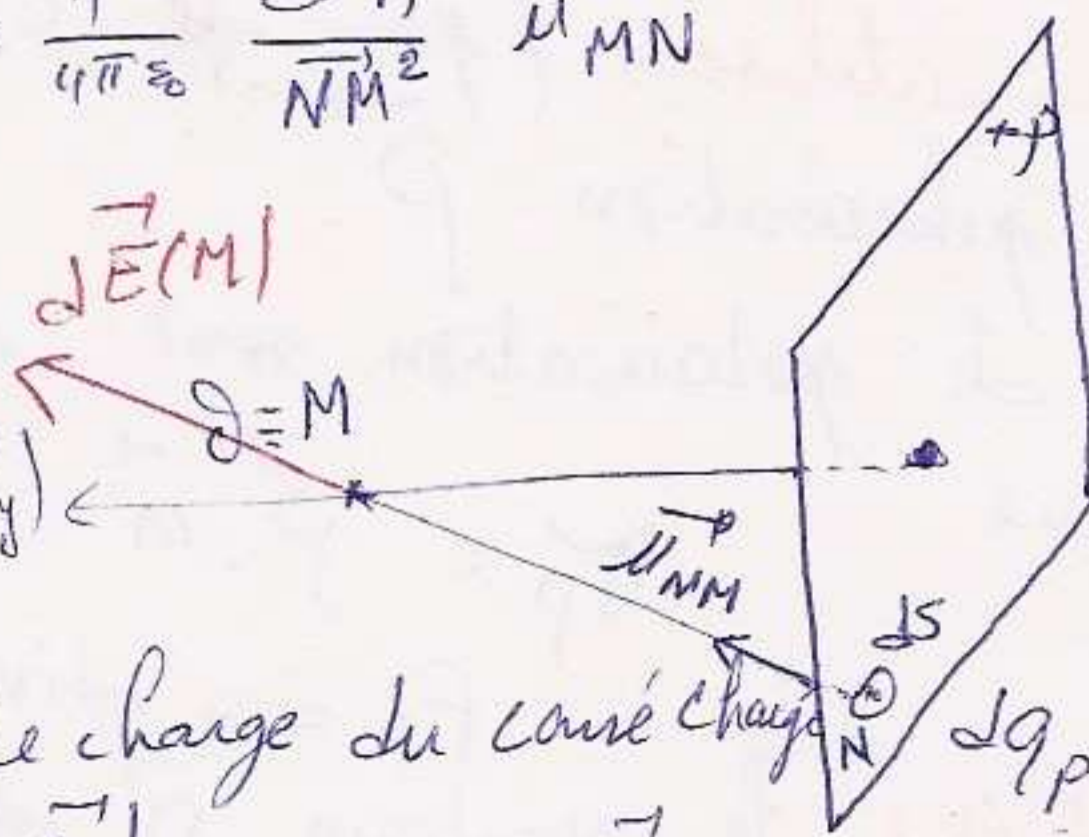 1/4πε₀ /NM² u MN
+ρ
dE(M)
O≡M
y)
u NM
dS
charge du carré chargé N dq p